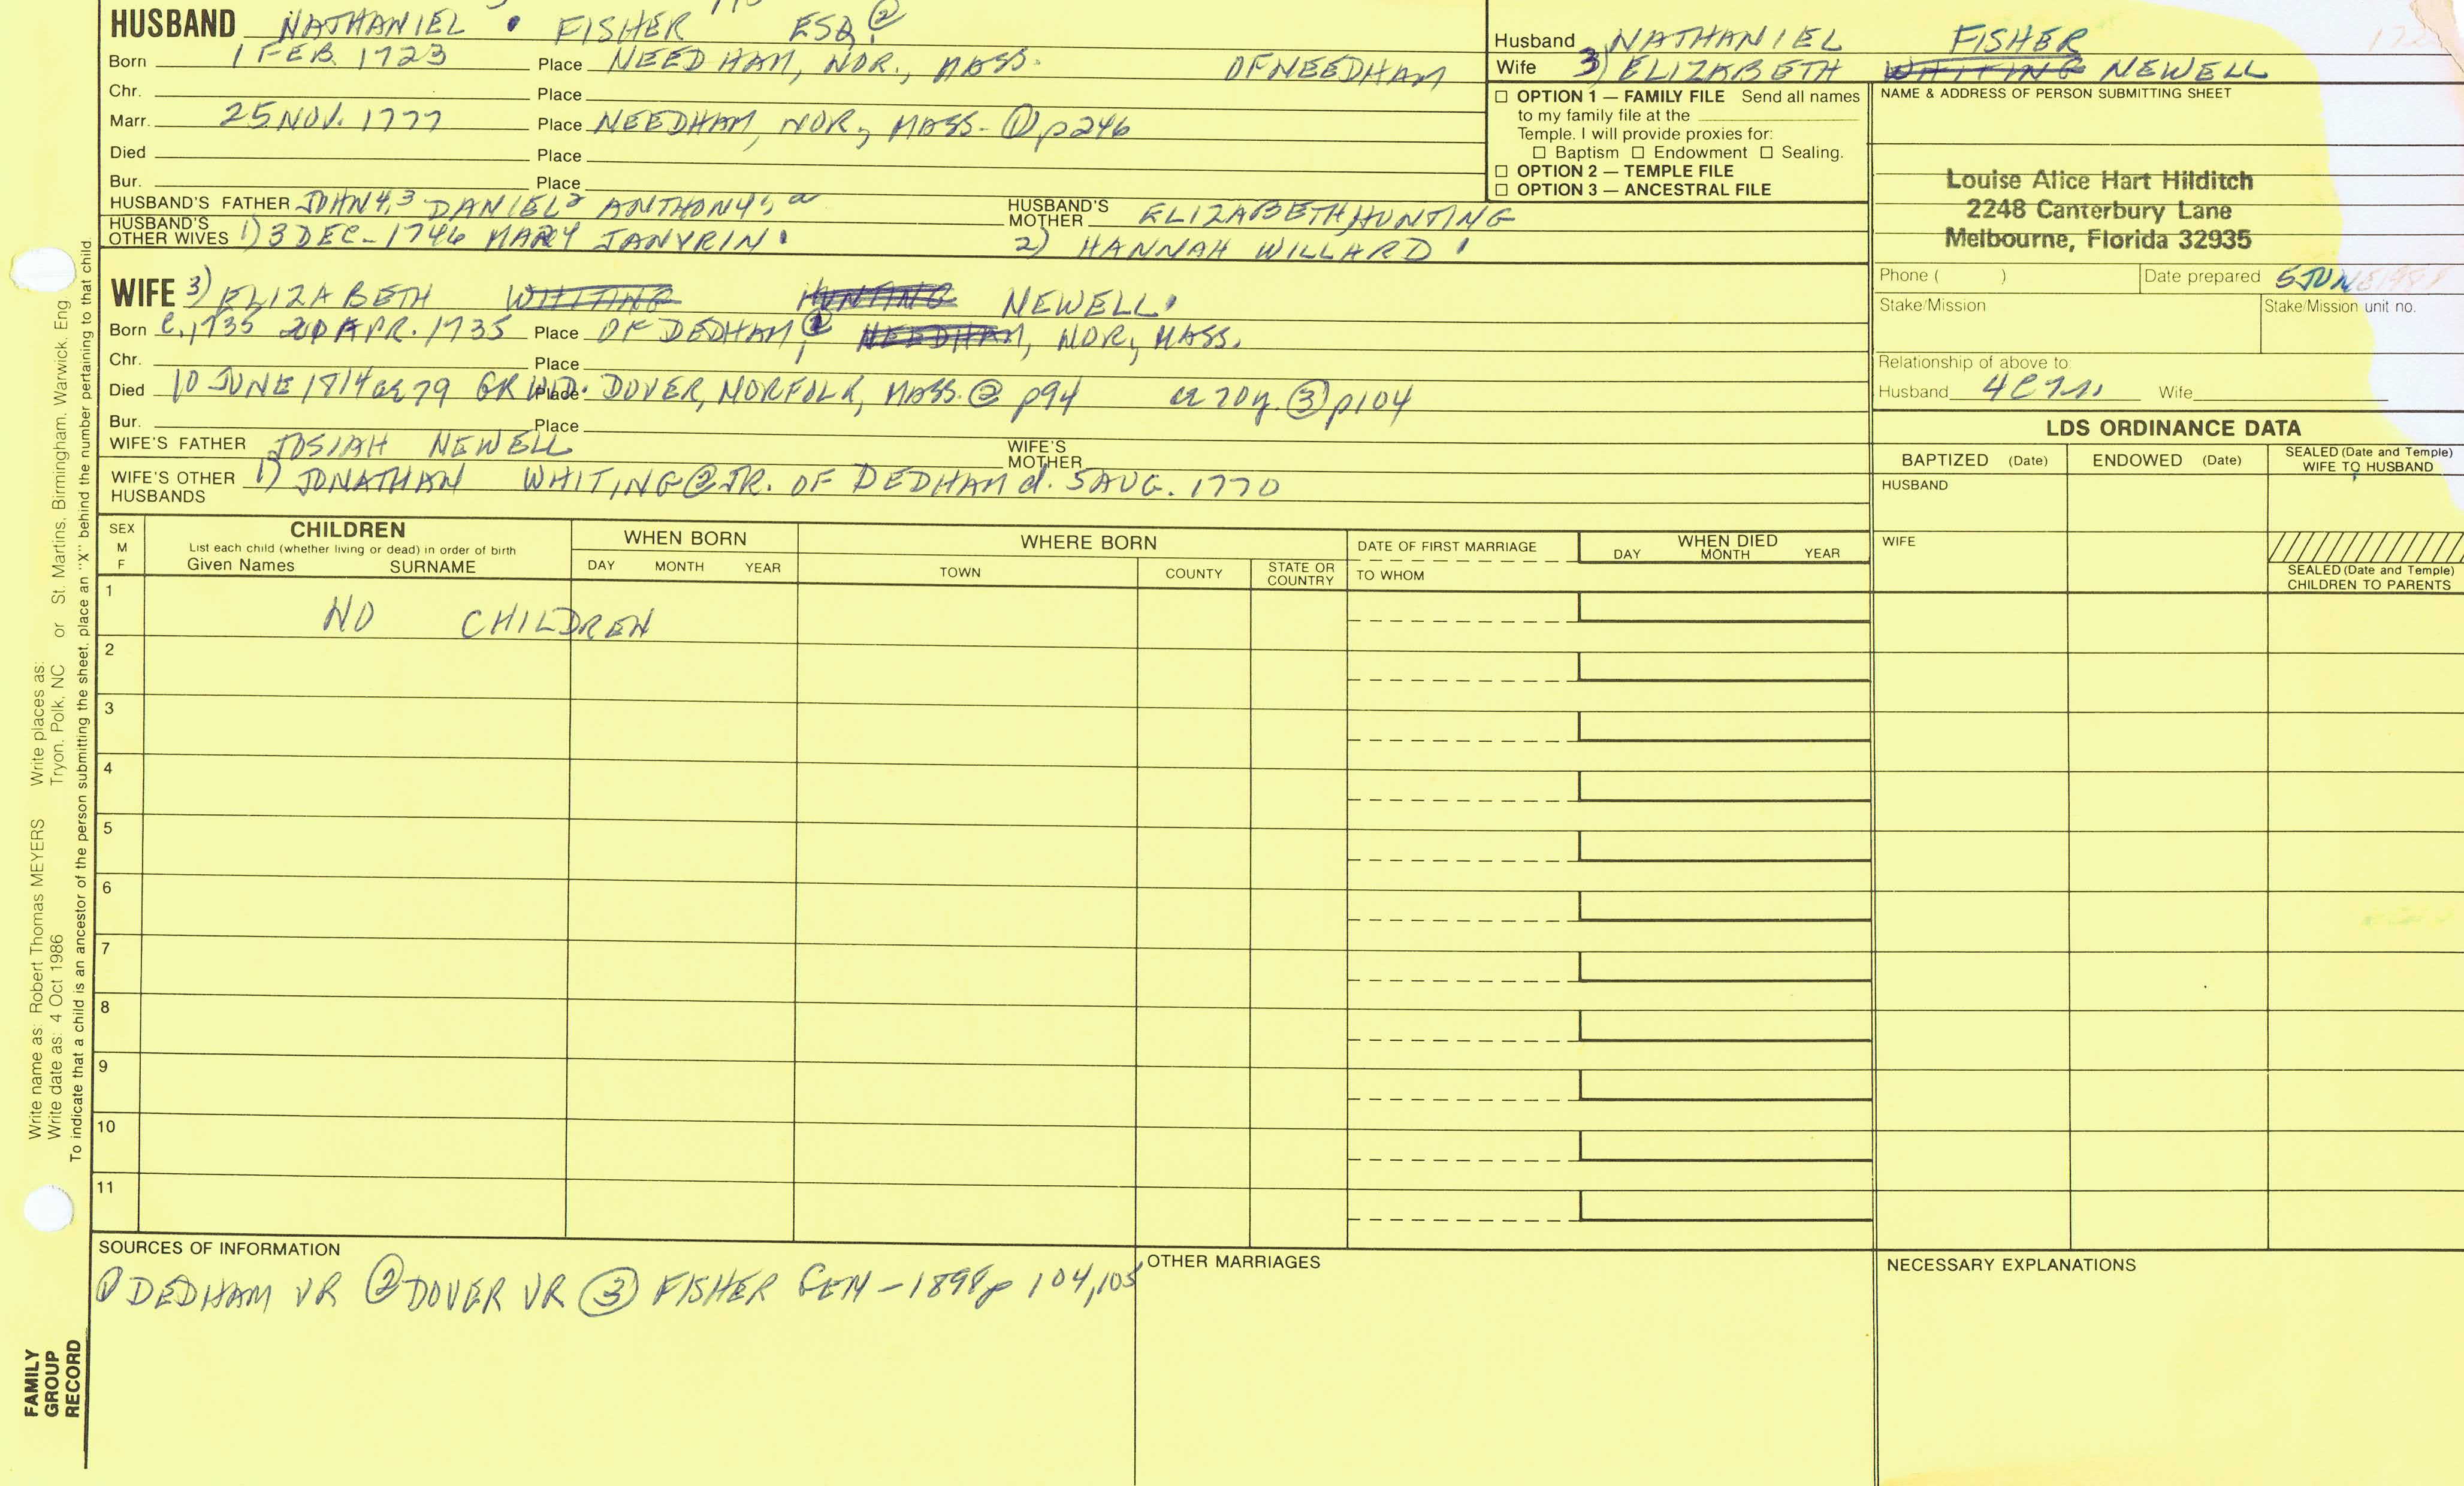 HUSBAND NATHANIEL FISHER ESQ. ②
Born 1 FEB. 1723 Place NEEDHAM, NOR., MASS. OF NEEDHAM
Chr. Place
Marr. 25 NOV. 1777 Place NEEDHAM, NOR., MASS. ① p246
Died Place
Bur. Place
HUSBAND'S FATHER JOHN 4, 3 DANIEL 2 ANTHONY HUSBAND'S MOTHER ELIZABETH HUNTING
HUSBAND'S OTHER WIVES 1) 3 DEC. 1746 MARY JANVRIN 2) HANNAH WILLARD
WIFE 3) ELIZABETH WHITING HUNTING NEWELL
Born c. 1735 20 APR. 1735 Place OF DEDHAM, NEEDHAM, NOR., MASS.
Chr. Place
Died 10 JUNE 1814 ae 79 GR Place DOVER, NORFOLK, MASS. ② p94 ③ p104
Bur. Place
WIFE'S FATHER JOSIAH NEWELL WIFE'S MOTHER
WIFE'S OTHER HUSBANDS 1) JONATHAN WHITING ② JR. OF DEDHAM d. 5 AUG. 1770
Husband NATHANIEL FISHER
Wife 3) ELIZABETH WHITING NEWELL
☐ OPTION 1 — FAMILY FILE Send all names
to my family file at the
Temple. I will provide proxies for:
☐ Baptism ☐ Endowment ☐ Sealing.
☐ OPTION 2 — TEMPLE FILE
☐ OPTION 3 — ANCESTRAL FILE
NAME & ADDRESS OF PERSON SUBMITTING SHEET
Louise Alice Hart Hilditch
2248 Canterbury Lane
Melbourne, Florida 32935
Phone ( ) Date prepared 5 JUNE
Stake/Mission Stake/Mission unit no.
Relationship of above to:
Husband Wife
LDS ORDINANCE DATA
BAPTIZED (Date) ENDOWED (Date) SEALED (Date and Temple)
WIFE TO HUSBAND
HUSBAND
WIFE
SEALED (Date and Temple)
CHILDREN TO PARENTS
SEX
M
F
CHILDREN
List each child (whether living or dead) in order of birth
Given Names SURNAME
WHEN BORN
DAY MONTH YEAR
WHERE BORN
TOWN COUNTY STATE OR COUNTRY
DATE OF FIRST MARRIAGE
TO WHOM
WHEN DIED
DAY MONTH YEAR
1 NO CHILDREN
2
3
4
5
6
7
8
9
10
11
SOURCES OF INFORMATION
① DEDHAM VR ② DOVER VR ③ FISHER GEN - 1898 p 104, 105
OTHER MARRIAGES
NECESSARY EXPLANATIONS
Write name as: Robert Thomas MEYERS Write places as:
Write date as: 4 Oct 1986 Tryon, Polk, NC or St. Martins, Birmingham, Warwick, Eng
To indicate that a child is an ancestor of the person submitting the sheet, place an "X" behind the number pertaining to that child.
FAMILY
GROUP
RECORD